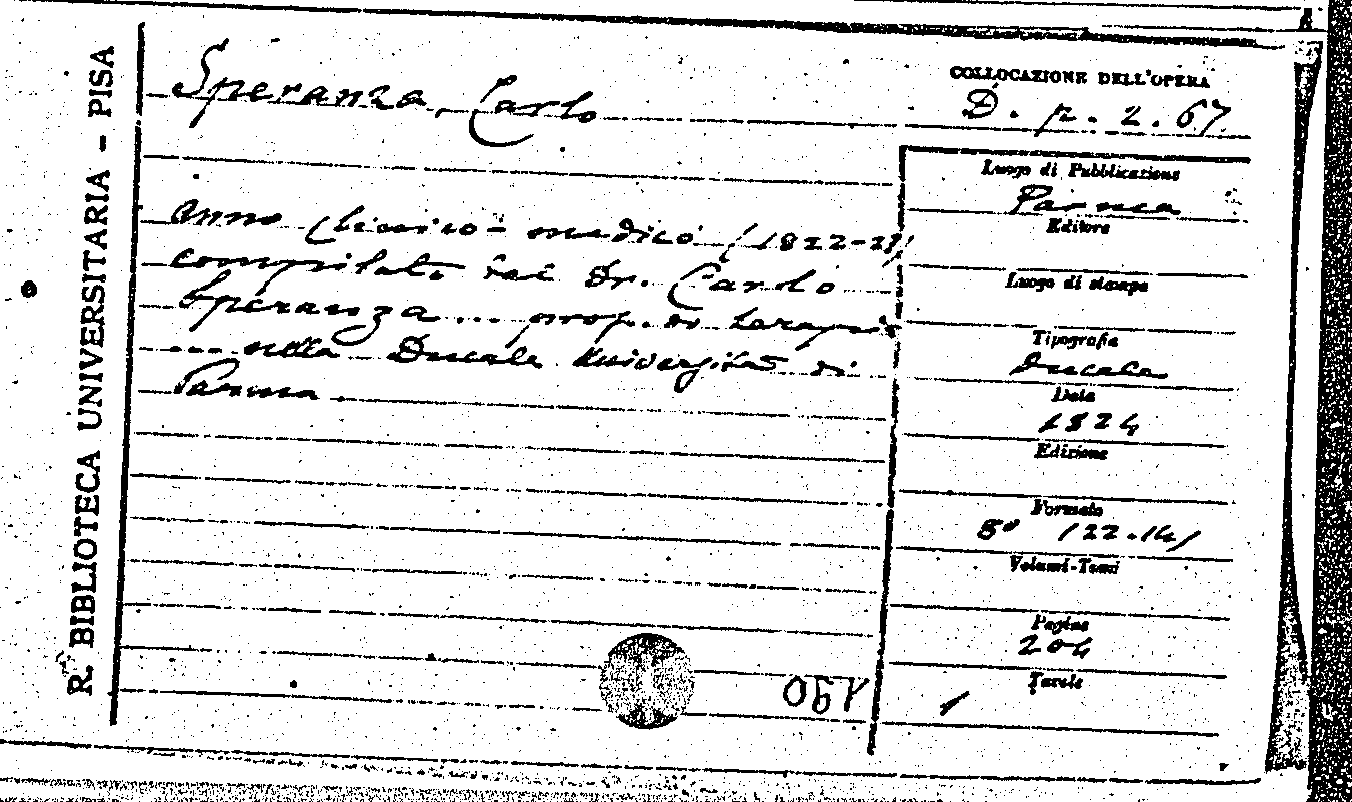 R. BIBLIOTECA UNIVERSITARIA - PISA
Speranza, Carlo
Anno Clinico-medico (1822-23)
compilato dal Dr. Carlo
Speranza ... prof. di terapia
... nella Ducale Università di
Parma.
COLLOCAZIONE DELL'OPERA
D. p. 2. 67
Luogo di Pubblicazione
Parma
Editore
Luogo di stampa
Tipografia
Ducale
Data
1824
Edizione
Formato
8º (22.14)
Volumi-Tomi
Pagine
204
Tavole